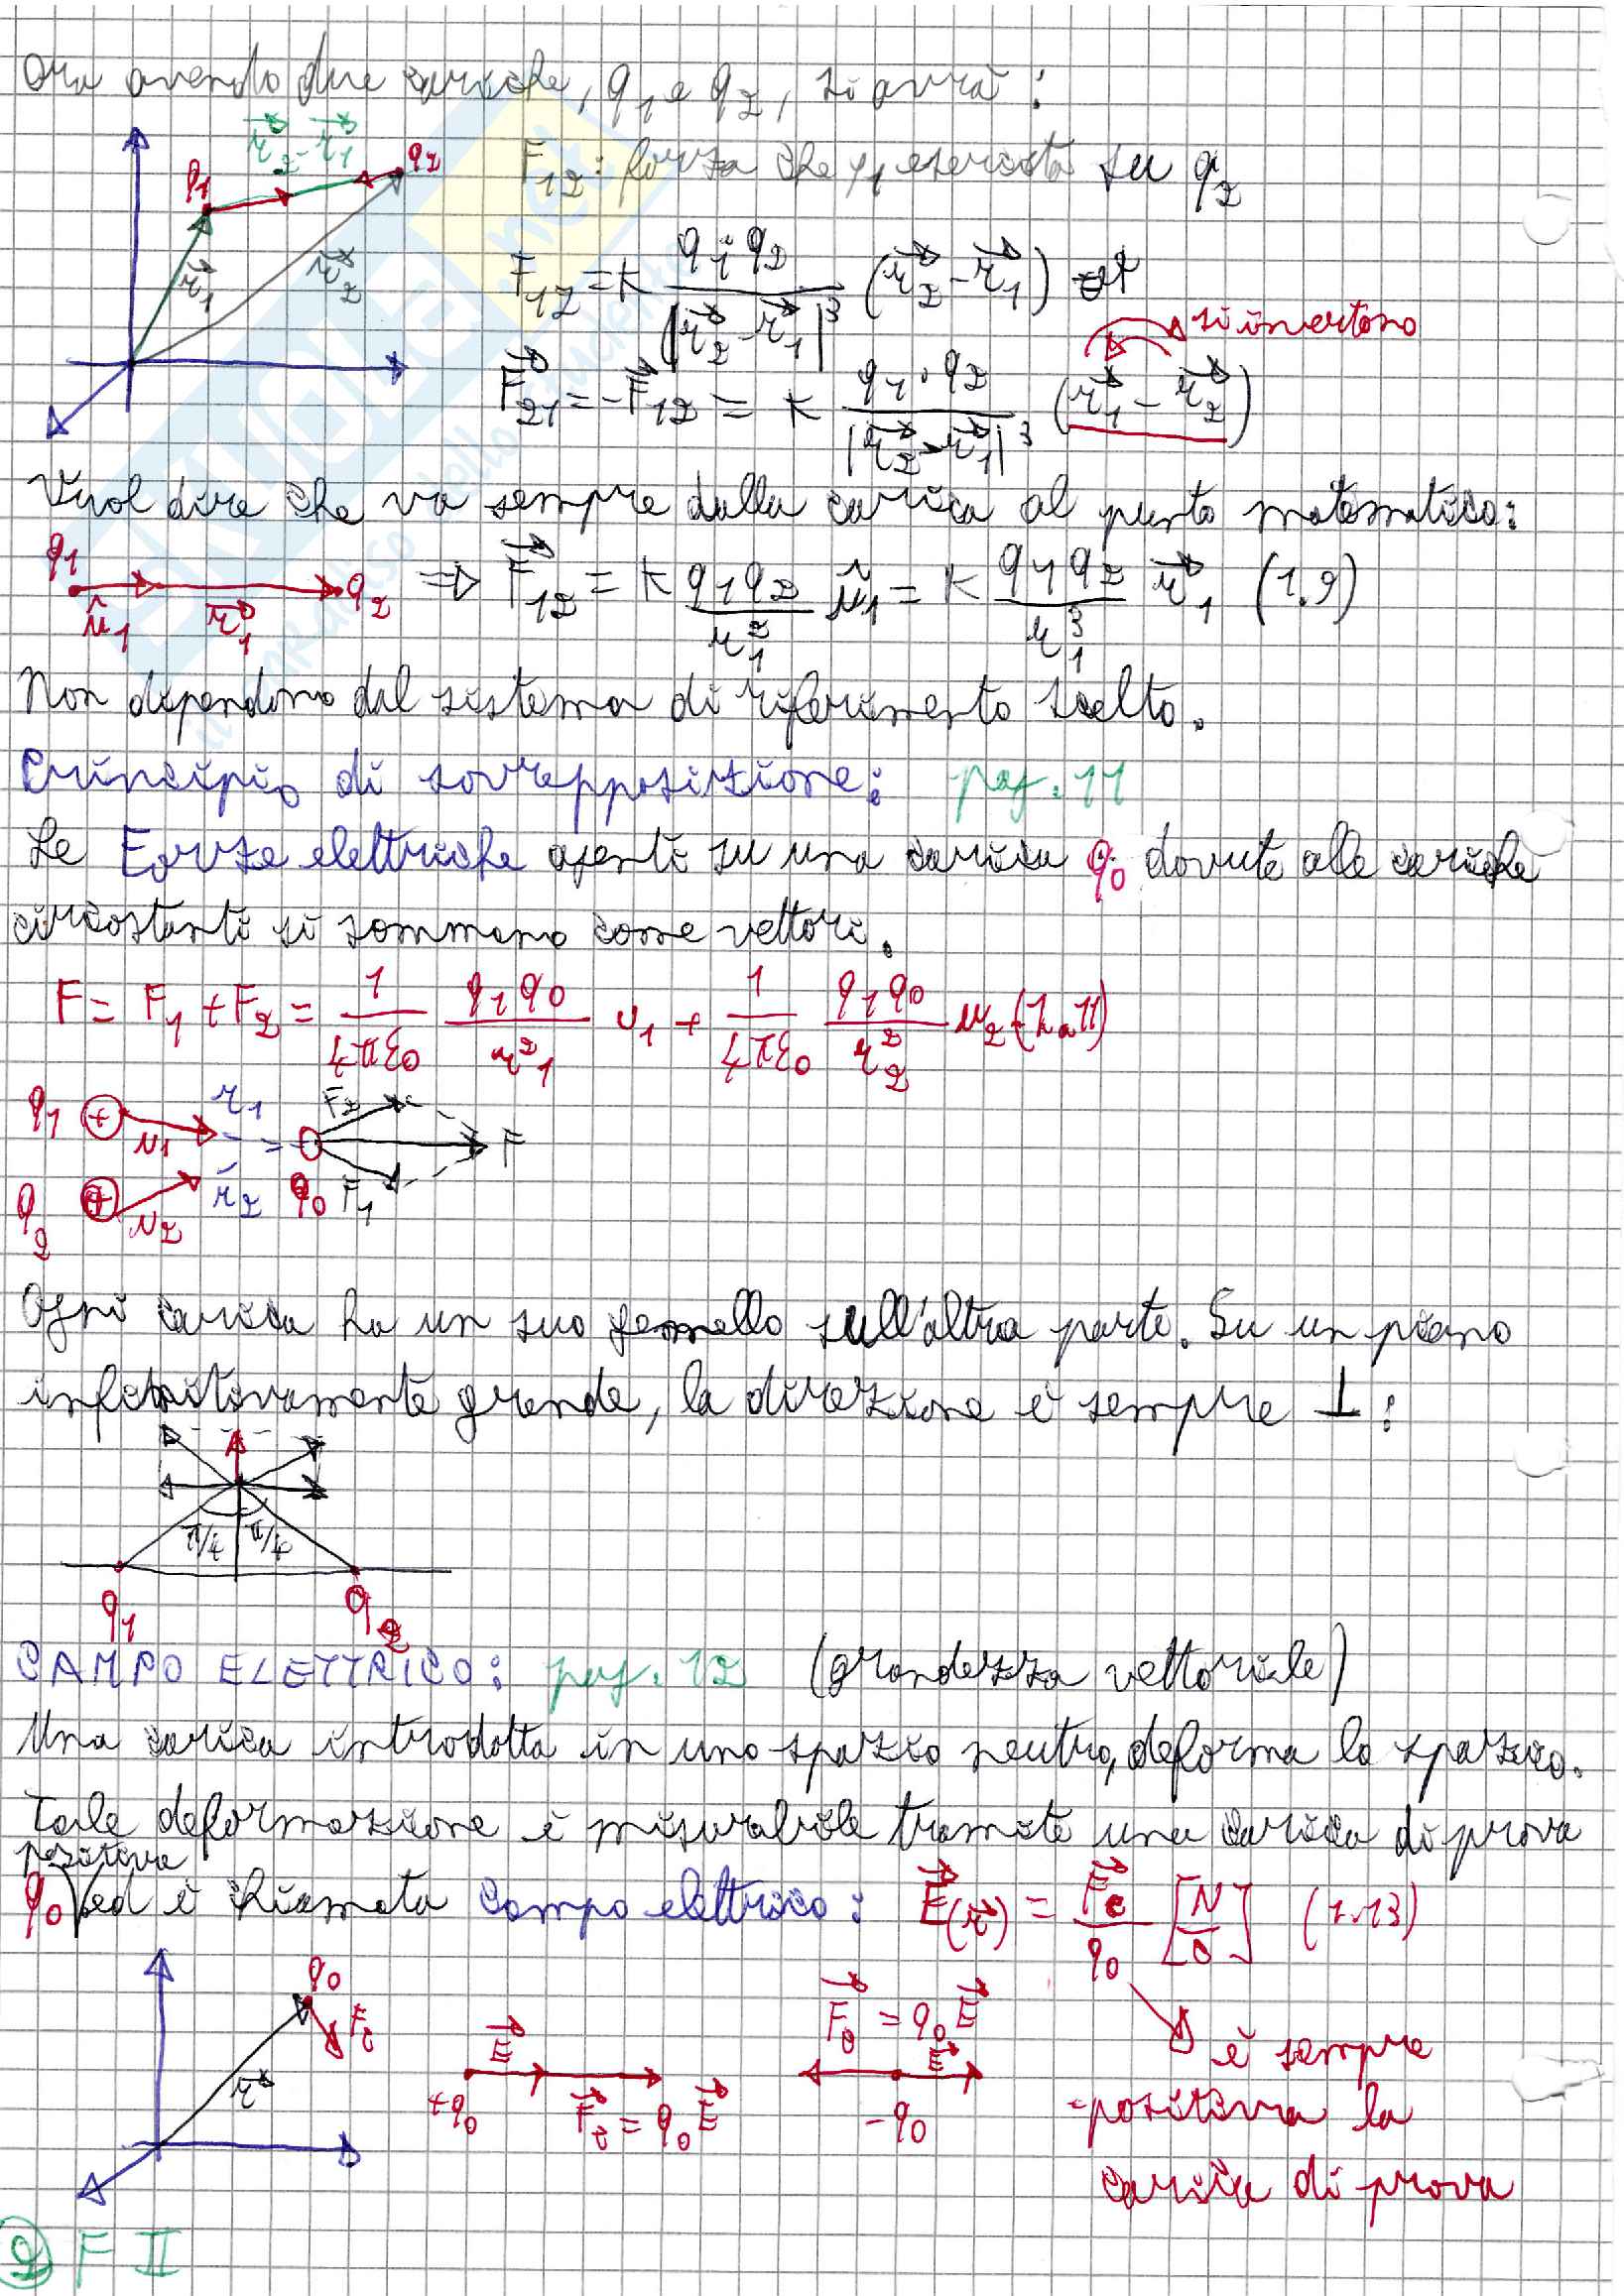 Ora avendo due cariche, q1 e q2, si avrà:
r⃗2 - r⃗1
q1
q2
r⃗1
r⃗2
F12: forza che q1 esercita su q2
F12 = K q1 q2 / |r⃗2 - r⃗1|³ (r⃗2 - r⃗1)
si invertono
F⃗21 = -F⃗12 = K q1·q2 / |r⃗2 - r⃗1|³ (r⃗1 - r⃗2)
Vuol dire che va sempre dalla carica al punto matematico:
q1 û1 r⃗1 q2 ⇒ F⃗12 = K q1q2 / r1² û1 = K q1q2 / r1³ r⃗1 (1.9)
Non dipendono dal sistema di riferimento scelto.
Principio di sovrapposizione: pag. 11
Le Forze elettriche agenti su una carica q0 dovute alle cariche
circostanti si sommano come vettori.
F = F1 + F2 = 1/4πε0 q1q0/r1² u1 + 1/4πε0 q1q0/r2² u2 (1.11)
q1 + u1 r1 F2
F
q2 + u2 r2 q0 F1
Ogni carica ha un suo gemello sull'altra parte. Su un piano
infinitivamente grande, la direzione è sempre ⊥:
π/4 π/4
q1 q2
CAMPO ELETTRICO: pag. 12 (grandezza vettoriale)
Una carica introdotta in uno spazio neutro, deforma lo spazio.
Tale deformazione è misurabile tramite una carica di prova
positiva
q0 ed è chiamata campo elettrico: E⃗(r⃗) = F⃗e/q0 [N/C] (1.13)
q0
Fe
r⃗
E⃗
+q0
F⃗e = q0E⃗
F⃗e = q0E⃗
E⃗
-q0
è sempre
positiva la
carica di prova
2 F II